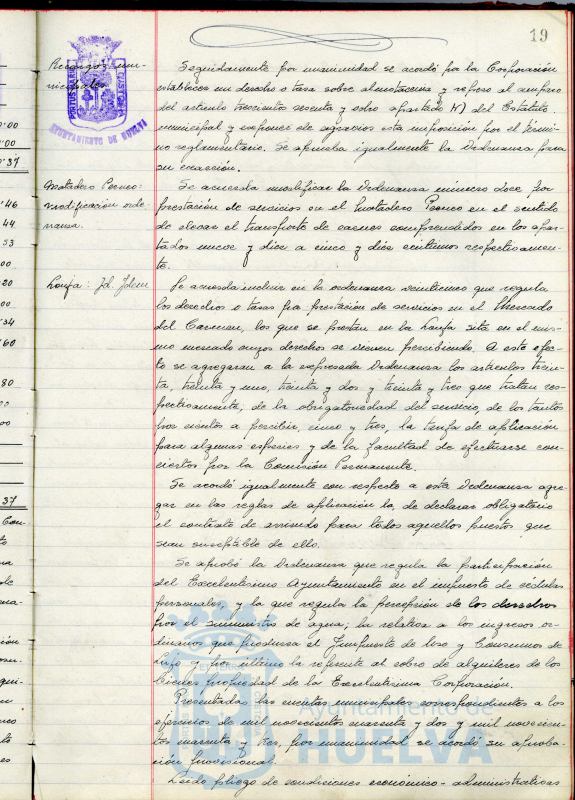 19
Recargos mu-
nicipales
AYUNTAMIENTO DE HUELVA
Seguidamente por unanimidad se acordó por la Corporación
establecer un derecho o tasa sobre almotacenía y repeso al amparo
del artículo trescientos sesenta y ocho apartado h) del Estatuto
municipal y exponer de agravios esta imposición por el térmi-
no reglamentario. Se aprueba igualmente la Ordenanza para
su exacción.
Matadero Porcino:
modificación orde-
nanza.
Se acuerda modificar la Ordenanza número doce por
prestación de servicios en el Matadero Porcino en el sentido
de elevar el transporte de carnes comprendidos en los apar-
tados nueve y diez a cinco y diez céntimos respectivamen-
te.
Lonja: Id. Idem
Se acuerda incluir en la ordenanza veinticinco que regula
los derechos o tasas por prestación de servicios en el Mercado
del Carmen, los que se prestan en la Lonja sita en el mis-
mo mercado cuyos derechos se vienen percibiendo. A este efec-
to se agregaran a la expresada Ordenanza los artículos trein-
ta, treinta y uno, treinta y dos y treinta y tres que tratan res-
pectivamente, de la obligatoriedad del servicio de los tantos
por ciento a percibir, cinco y tres, la tarifa de aplicación
para algunas especies y de la facultad de efectuarse con-
ciertos por la Comisión Permanente.
Se acordó igualmente con respecto a esta Ordenanza agre-
gar en las reglas de aplicación la, de declarar obligatorio
el contrato de arriendo para todos aquellos puestos que
sean susceptible de ello.
Se aprobó la Ordenanza que regula la participación
del Excelentísimo Ayuntamiento en el impuesto de cédulas
personales, y la que regula la percepción de los derechos
por el suministro de agua; la relativa a los ingresos or-
dinarios que produzca el Impuesto de Uso y Consumos de
Lujo y por último la referente al cobro de alquileres de los
bienes propiedad de la Excelentísima Corporación.
Presentadas las cuentas municipales correspondientes a los
ejercicios de mil novecientos cuarenta y dos y mil novecien-
tos cuarenta y tres, por unanimidad se acordó su aproba-
ción provisional.
Leído pliego de condiciones económico-administrativas
Ayuntamiento de
HUELVA